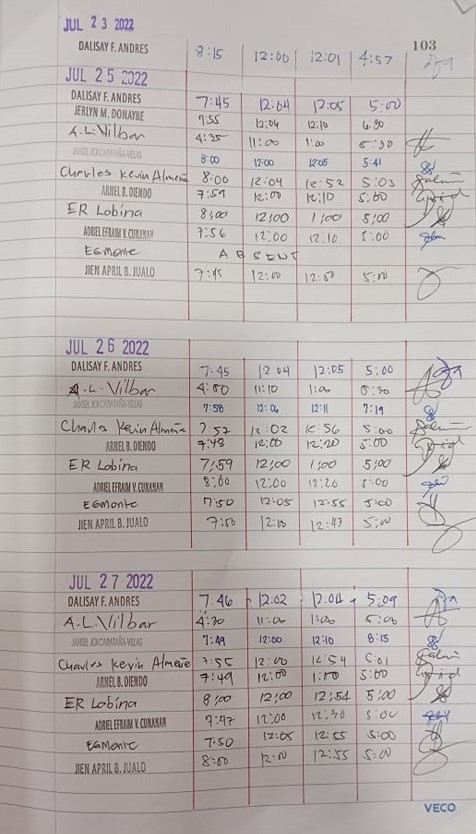 JUL 23 2022
103
DALISAY F. ANDRES 8:15 12:00 12:01 4:57
JUL 25 2022
DALISAY F. ANDRES 7:45 12:04 12:05 5:00
JERLYN M. DONAYRE 7:55 12:04 12:10 6:30
A.L. Vilbar 4:35 11:00 1:00 5:30
8:00 12:00 12:05 5:41
Charles Kevin Almeñe 8:00 12:04 12:52 5:03
ARNEL B. DIENDO 7:59 12:00 12:10 5:00
ER Lobina 8:00 12:00 1:00 5:00
ADRIEL EFRAIM V. CUNANAN 7:56 12:00 12:10 5:00
EGMONTE ABSENT
JIEN APRIL B. JUALO 7:45 12:00 12:50 5:00
JUL 26 2022
DALISAY F. ANDRES 7:45 12:04 12:05 5:00
A.L. Vilbar 4:00 11:10 1:00 5:30
7:58 12:06 12:11 7:19
Charles Kevin Almeñe 7:57 12:02 12:56 5:00
ARNEL B. DIENDO 7:43 12:00 12:20 5:00
ER Lobina 7:59 12:00 1:00 5:00
ADRIEL EFRAIM V. CUNANAN 8:00 12:00 12:20 5:00
EGMONTE 7:50 12:05 12:55 5:00
JIEN APRIL B. JUALO 7:50 12:10 12:47 5:00
JUL 27 2022
DALISAY F. ANDRES 7:46 12:02 12:04 5:09
A.L. Vilbar 4:30 11:00 1:00 5:00
7:49 12:00 12:10 8:15
Charles Kevin Almeñe 7:55 12:00 12:54 5:01
ARNEL B. DIENDO 7:49 12:00 1:00 5:00
ER Lobina 8:00 12:00 12:54 5:00
ADRIEL EFRAIM V. CUNANAN 7:47 12:00 12:30 5:00
EGMONTE 7:50 12:05 12:55 5:00
JIEN APRIL B. JUALO 8:00 12:00 12:55 5:00
VECO